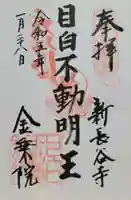 奉拝
新長谷寺
目白不動明王
令和五年
一月二十八日
金乗院